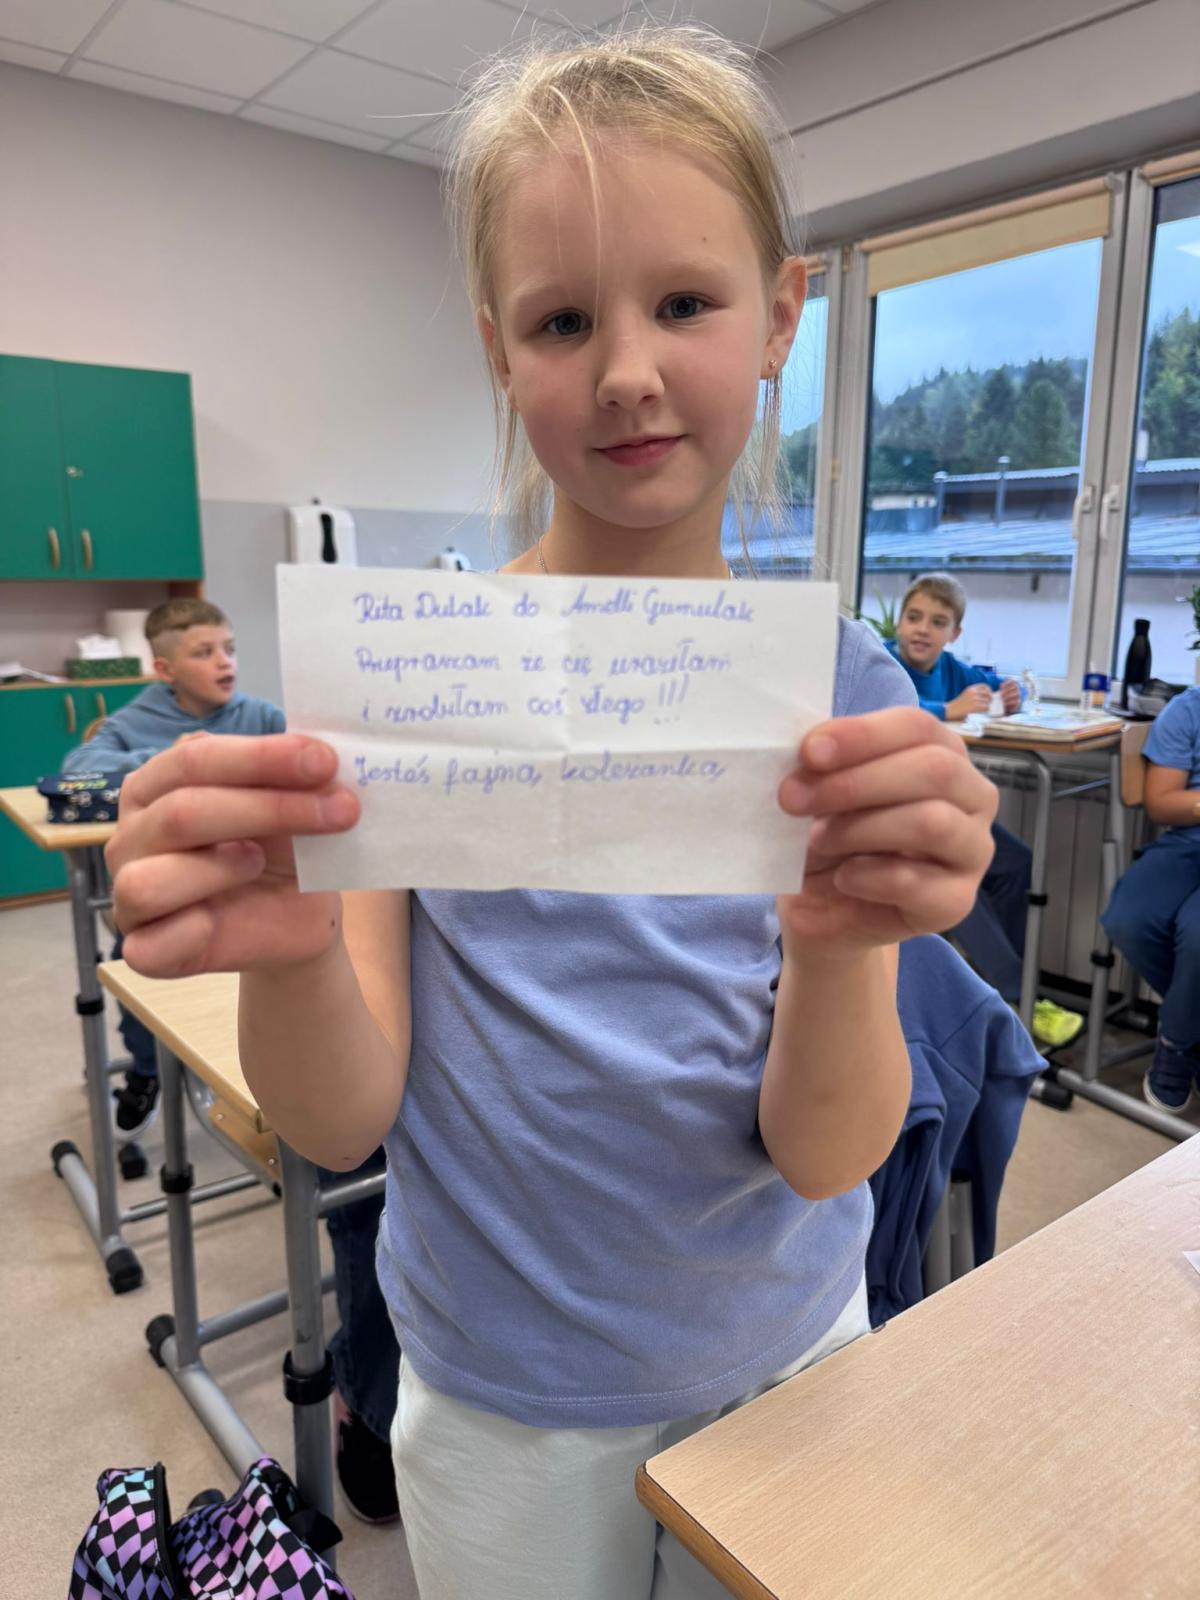 Rita Dulak do Amelli Gumulak
Przepraszam że cię uraziłam
i zrobiłam coś złego !!!
Jesteś fajną koleżanką